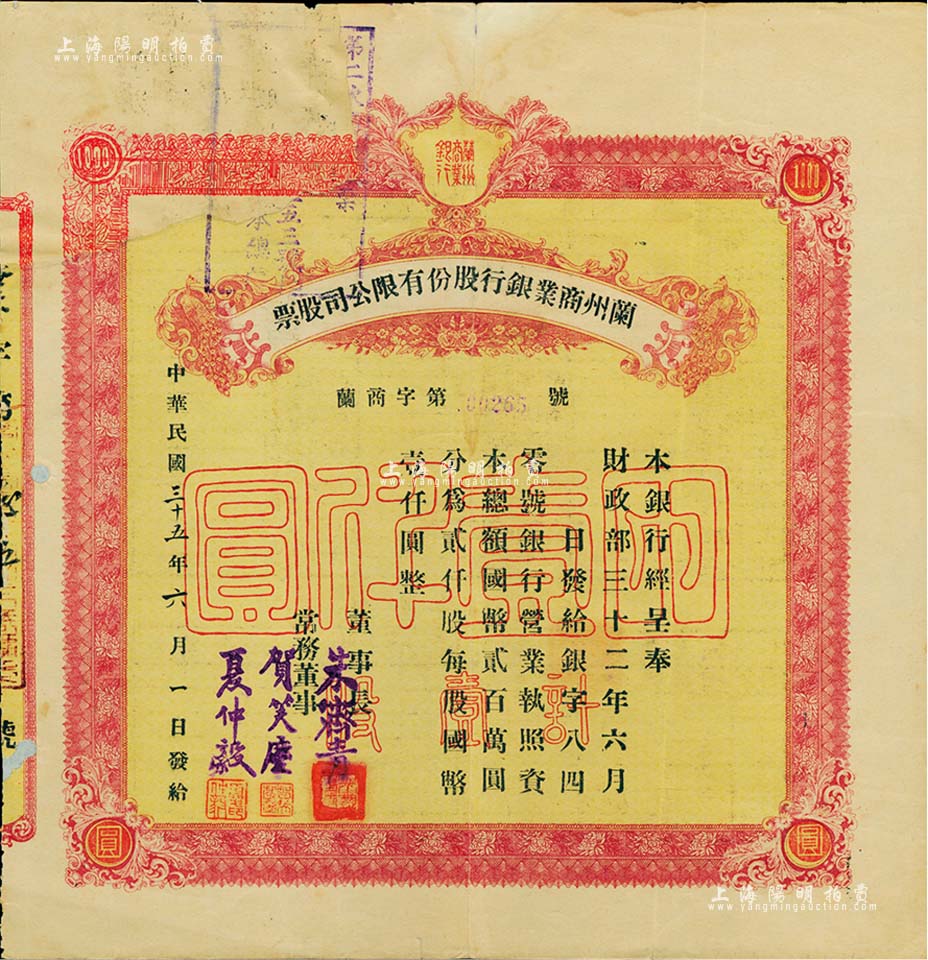 上海陽明拍賣
www.yangmingauction.com
上海陽明拍賣
www.yangmingauction.com
第二次
1000
蘭州商業銀行
1000
蘭州商業銀行股份有限公司股票
蘭商字第00265號
本銀行經呈奉
財政部三十二年六月
日發給銀字八四
零號銀行營業執照資
本總額國幣貳百萬圓
分為貳仟股每股國幣
壹仟圓整
計壹股
董事長
常務董事
賀笑塵
夏仲毅
中華民國三十五年六月一日發給
上海陽明拍賣
www.yangmingauction.com
上海陽明拍賣
www.yangmingauction.com
圓
圓
上海陽明拍賣
www.yangmingauction.com
號